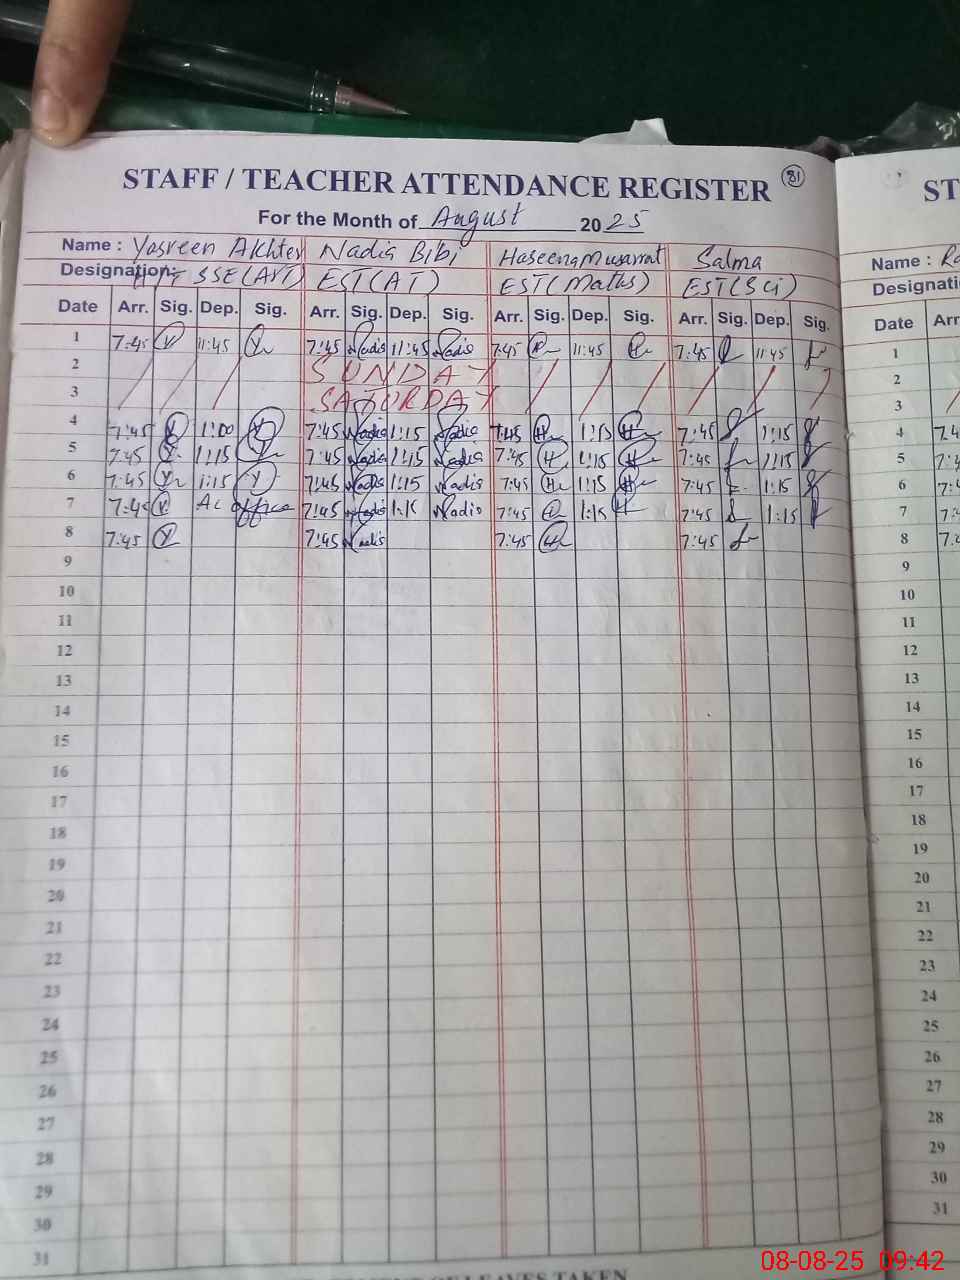 STAFF / TEACHER ATTENDANCE REGISTER 81 ST
For the Month of August 2025
Name : Yasreen Akhter Nadia Bibi Haseena Musarrat Salma Name :
Designation: SSE(ART) EST(AT) EST(Maths) EST(Sci) Designati
Date Arr. Sig. Dep. Sig. Arr. Sig. Dep. Sig. Arr. Sig. Dep. Sig. Arr. Sig. Dep. Sig. Date Arr
1 7:45 11:45 7:45 Nadia 11:45 Nadia 7:45 11:45 7:45 11:45 1
2 SUNDAY 2
3 SATURDAY 3
4 7:45 1:00 7:45 Nadia 1:15 Nadia 7:45 H 1:15 H 7:45 1:15 4 7.4
5 7:45 Y 1:15 Y 7:45 Nadia 1:15 Nadia 7:45 H 1:15 H 7:45 1:15 5 7:4
6 7:45 Y 1:15 Y 7:45 Nadia 1:15 Nadia 7:45 H 1:15 H 7:45 1:15 6 7:4
7 7:45 Y AC office 7:45 Nadia 1:15 Nadia 7:45 1:15 H 7:45 1:15 7 7:4
8 7:45 Y 7:45 Nadia 7:45 H 7:45 8 7.4
9 9
10 10
11 11
12 12
13 13
14 14
15 15
16 16
17 17
18 18
19 19
20 20
21 21
22 22
23 23
24 24
25 25
26 26
27 27
28 28
29 29
30 30
31 31
OF LEAVES TAKEN
08-08-25 09:42